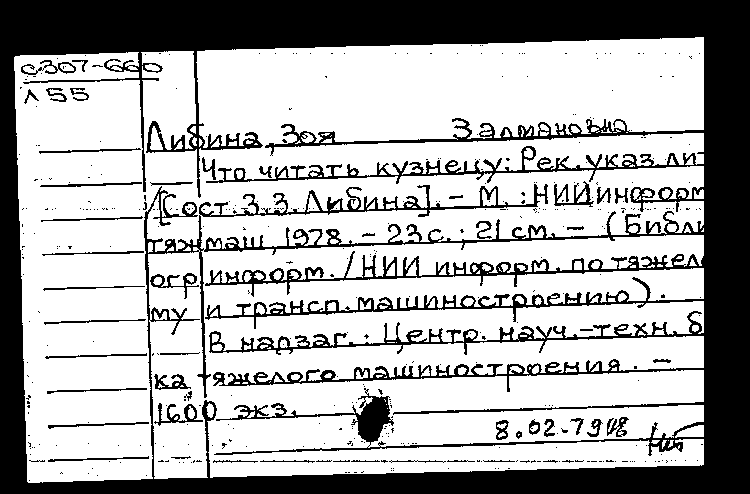 с307-660
Л55
Либина, Зоя Залмановна.
Что читать кузнецу: Рек. указ. лит
/[Сост. З.З. Либина]. - М. : НИИинформ
тяжмаш, 1978. - 23 с. ; 21 см. - (Библи
огр информ. /НИИ информ. по тяжел
му и трансп. машиностроению).
В надзаг. : Центр. науч.-техн. б
ка тяжелого машиностроения. -
1600 экз.
8.02-79